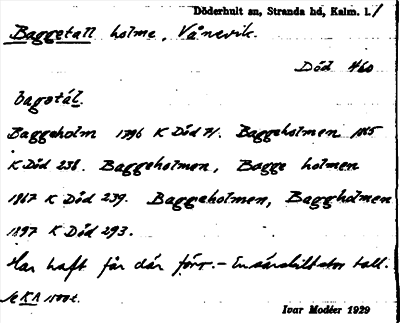 Döderhult sn, Stranda hd, Kalm. l.
Baggetall holme, Vånevik.
Död H60
bagətál.
Baggeholm 1796 K Död 71. Baggeholmen 1865
K Död 238. Baggeholmen, Bagge holmen
1867 K Död 239. Baggeholmen, Baggholmen
1897 K Död 293.
Har haft får där förr. – En särskilt stor tall.
Ivar Modéer 1929